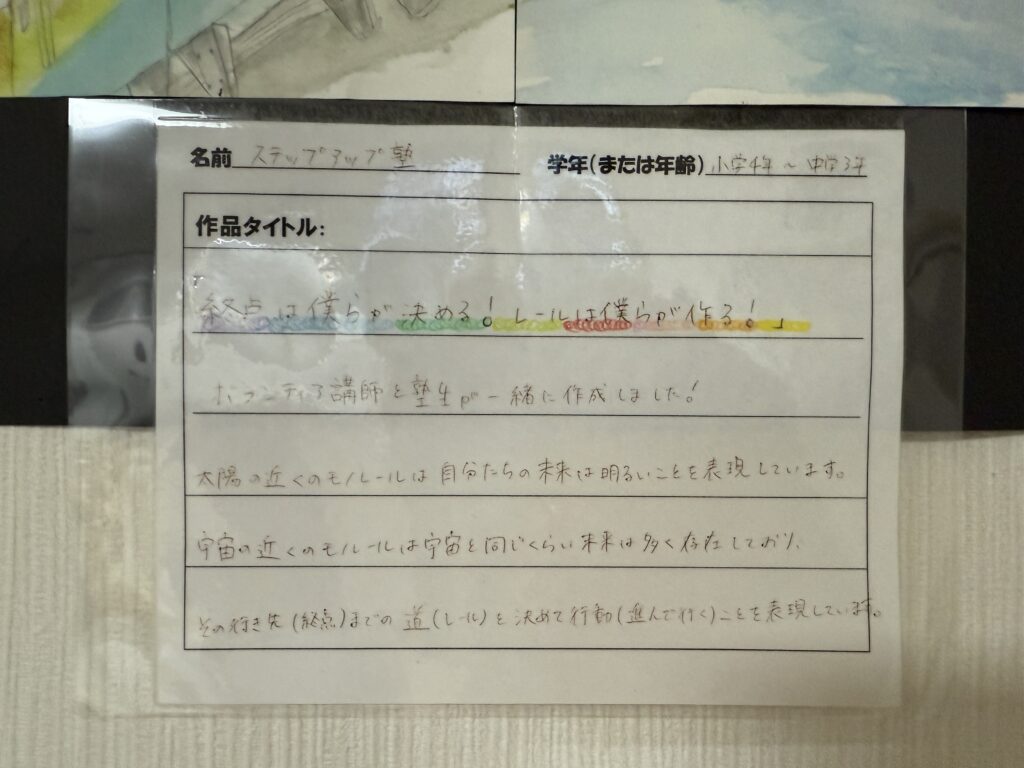 名前 ステップアップ塾 学年(または年齢) 小学4年 ～ 中学3年
作品タイトル:
「終点は僕らが決める！レールは僕らが作る！」
ボランティア講師と塾生が一緒に作成しました！
太陽の近くのモノレールは自分たちの未来は明るいことを表現しています。
宇宙の近くのモノレールは宇宙と同じくらい未来は多く存在しており、
その行き先(終点)までの道(レール)を決めて行動(進んで行く)ことを表現しています。